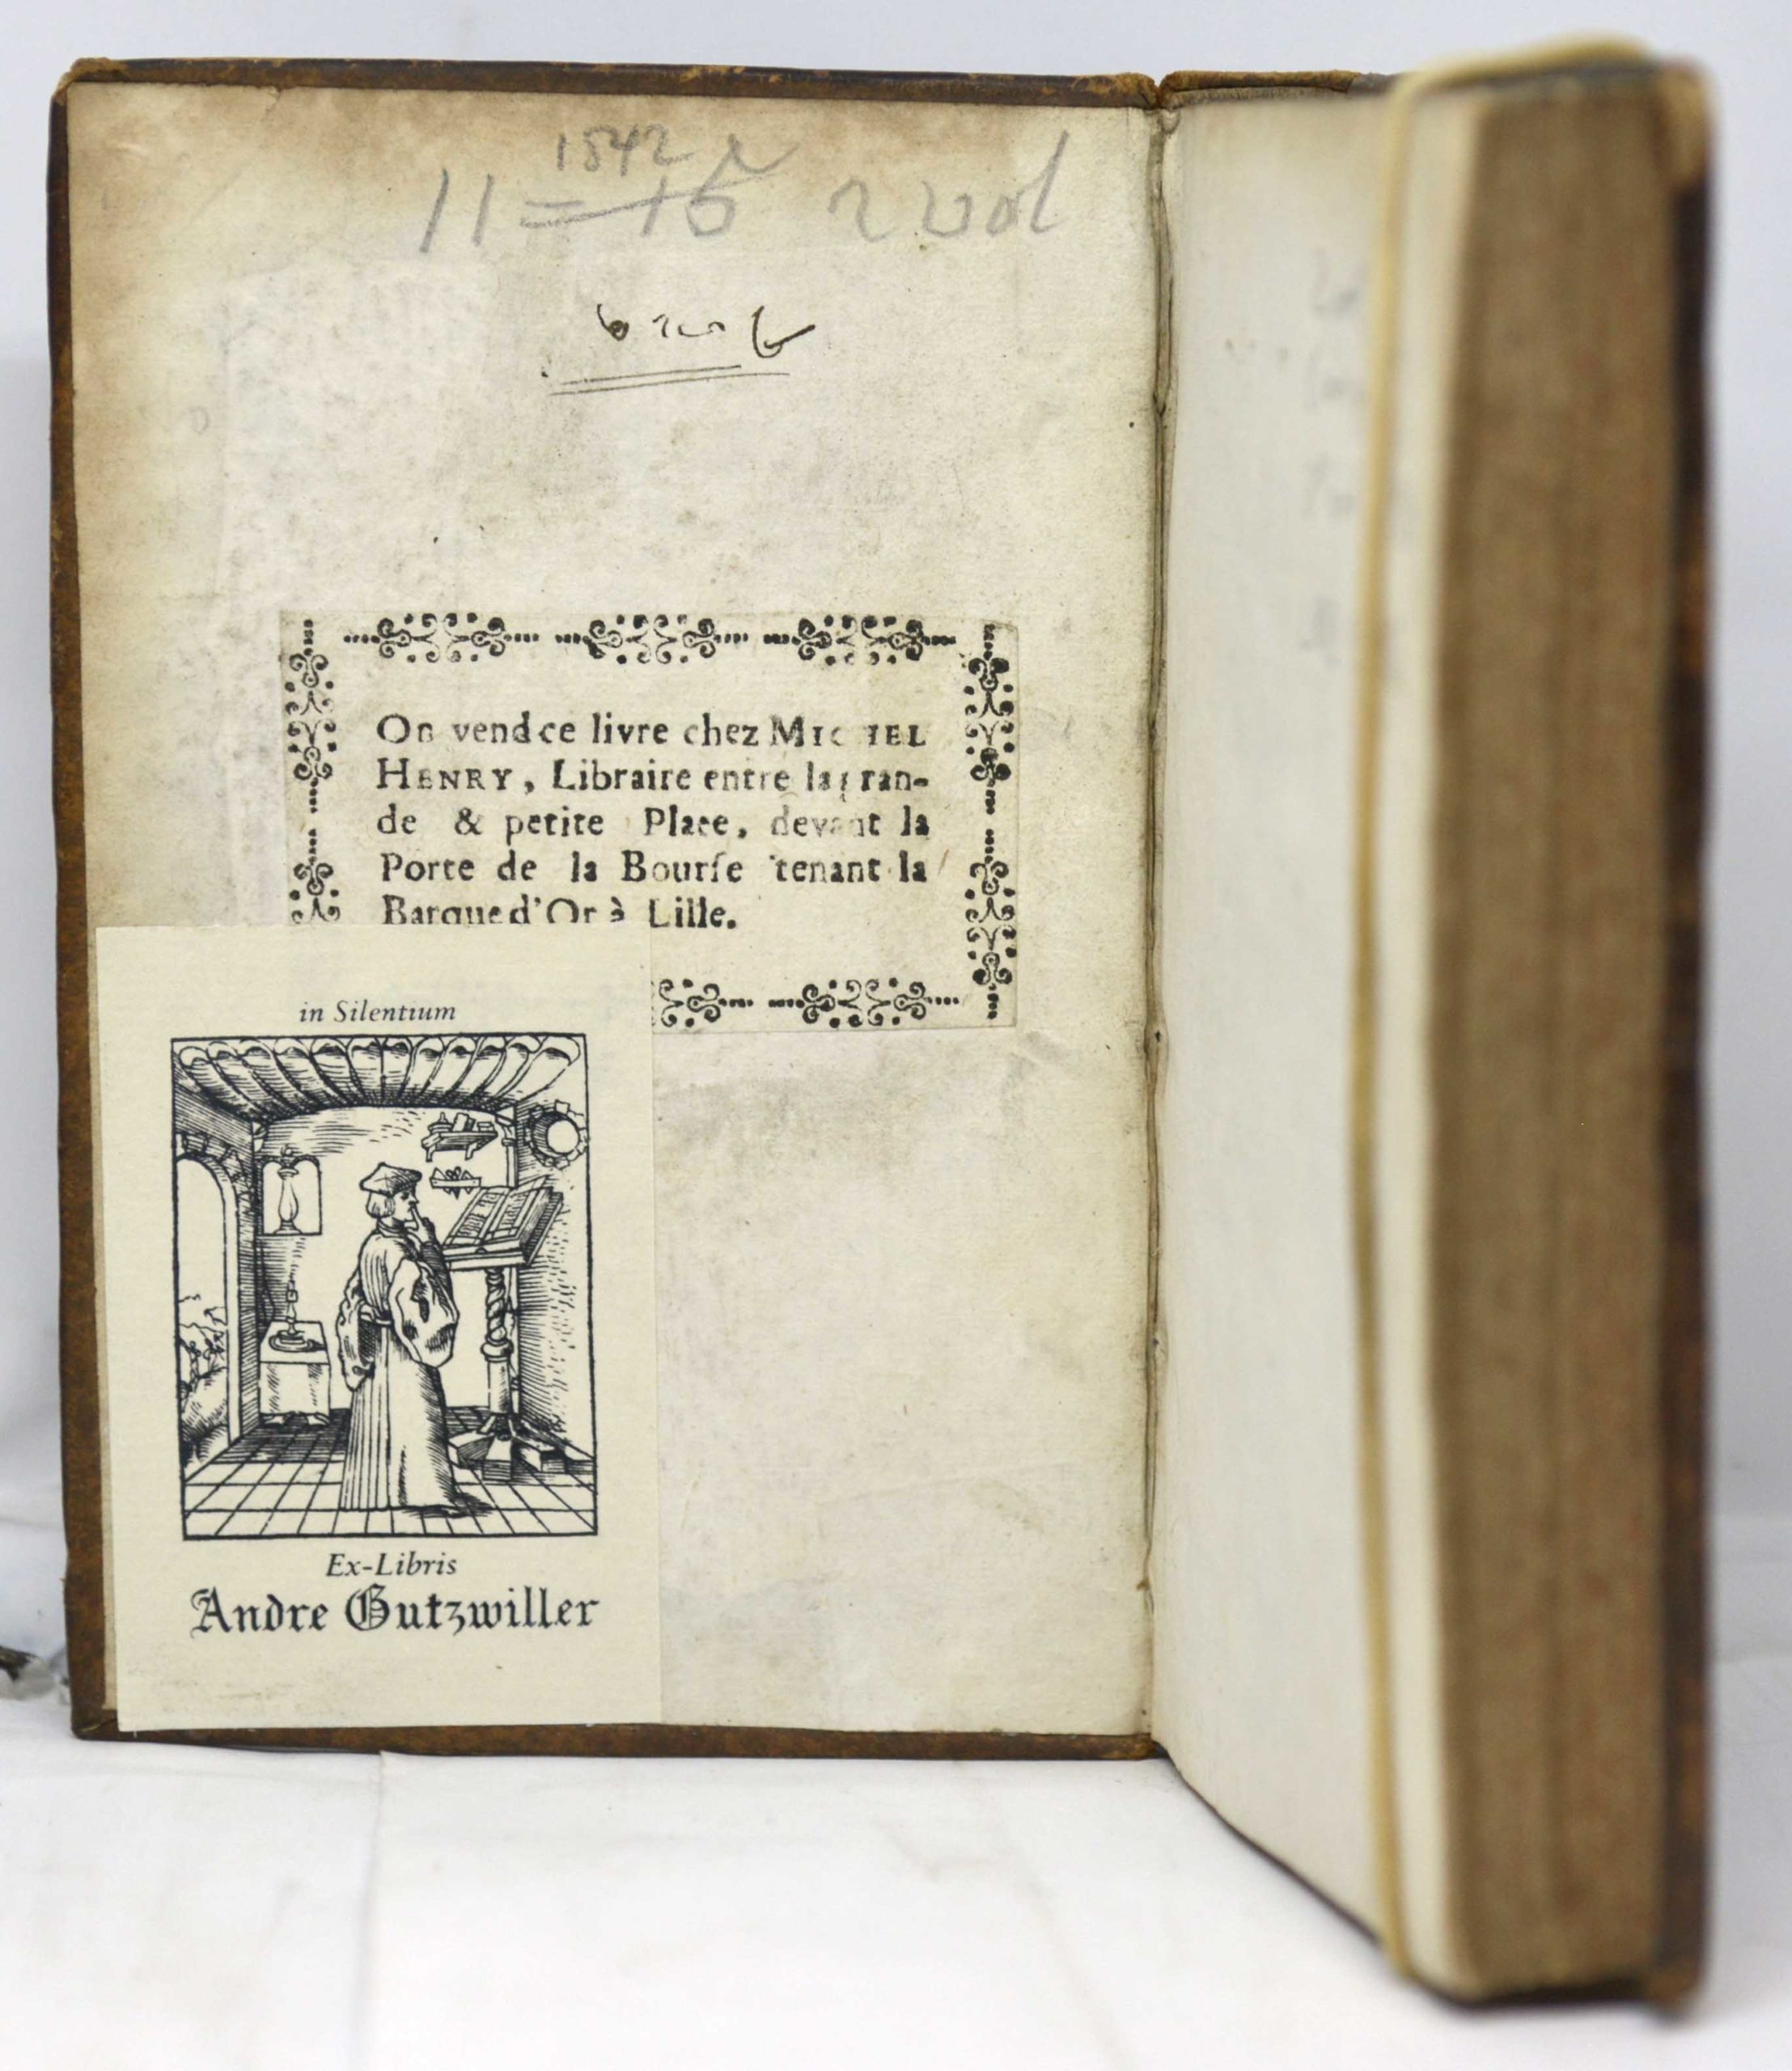 1542
11 = 15 2 vol
On vend ce livre chez MICHIEL
HENRY, Libraire entre la gran-
de & petite Place, devant la
Porte de la Bourſe tenant la
Barque d'Or à Lille.
in Silentium
Ex-Libris
Andre Gutzwiller